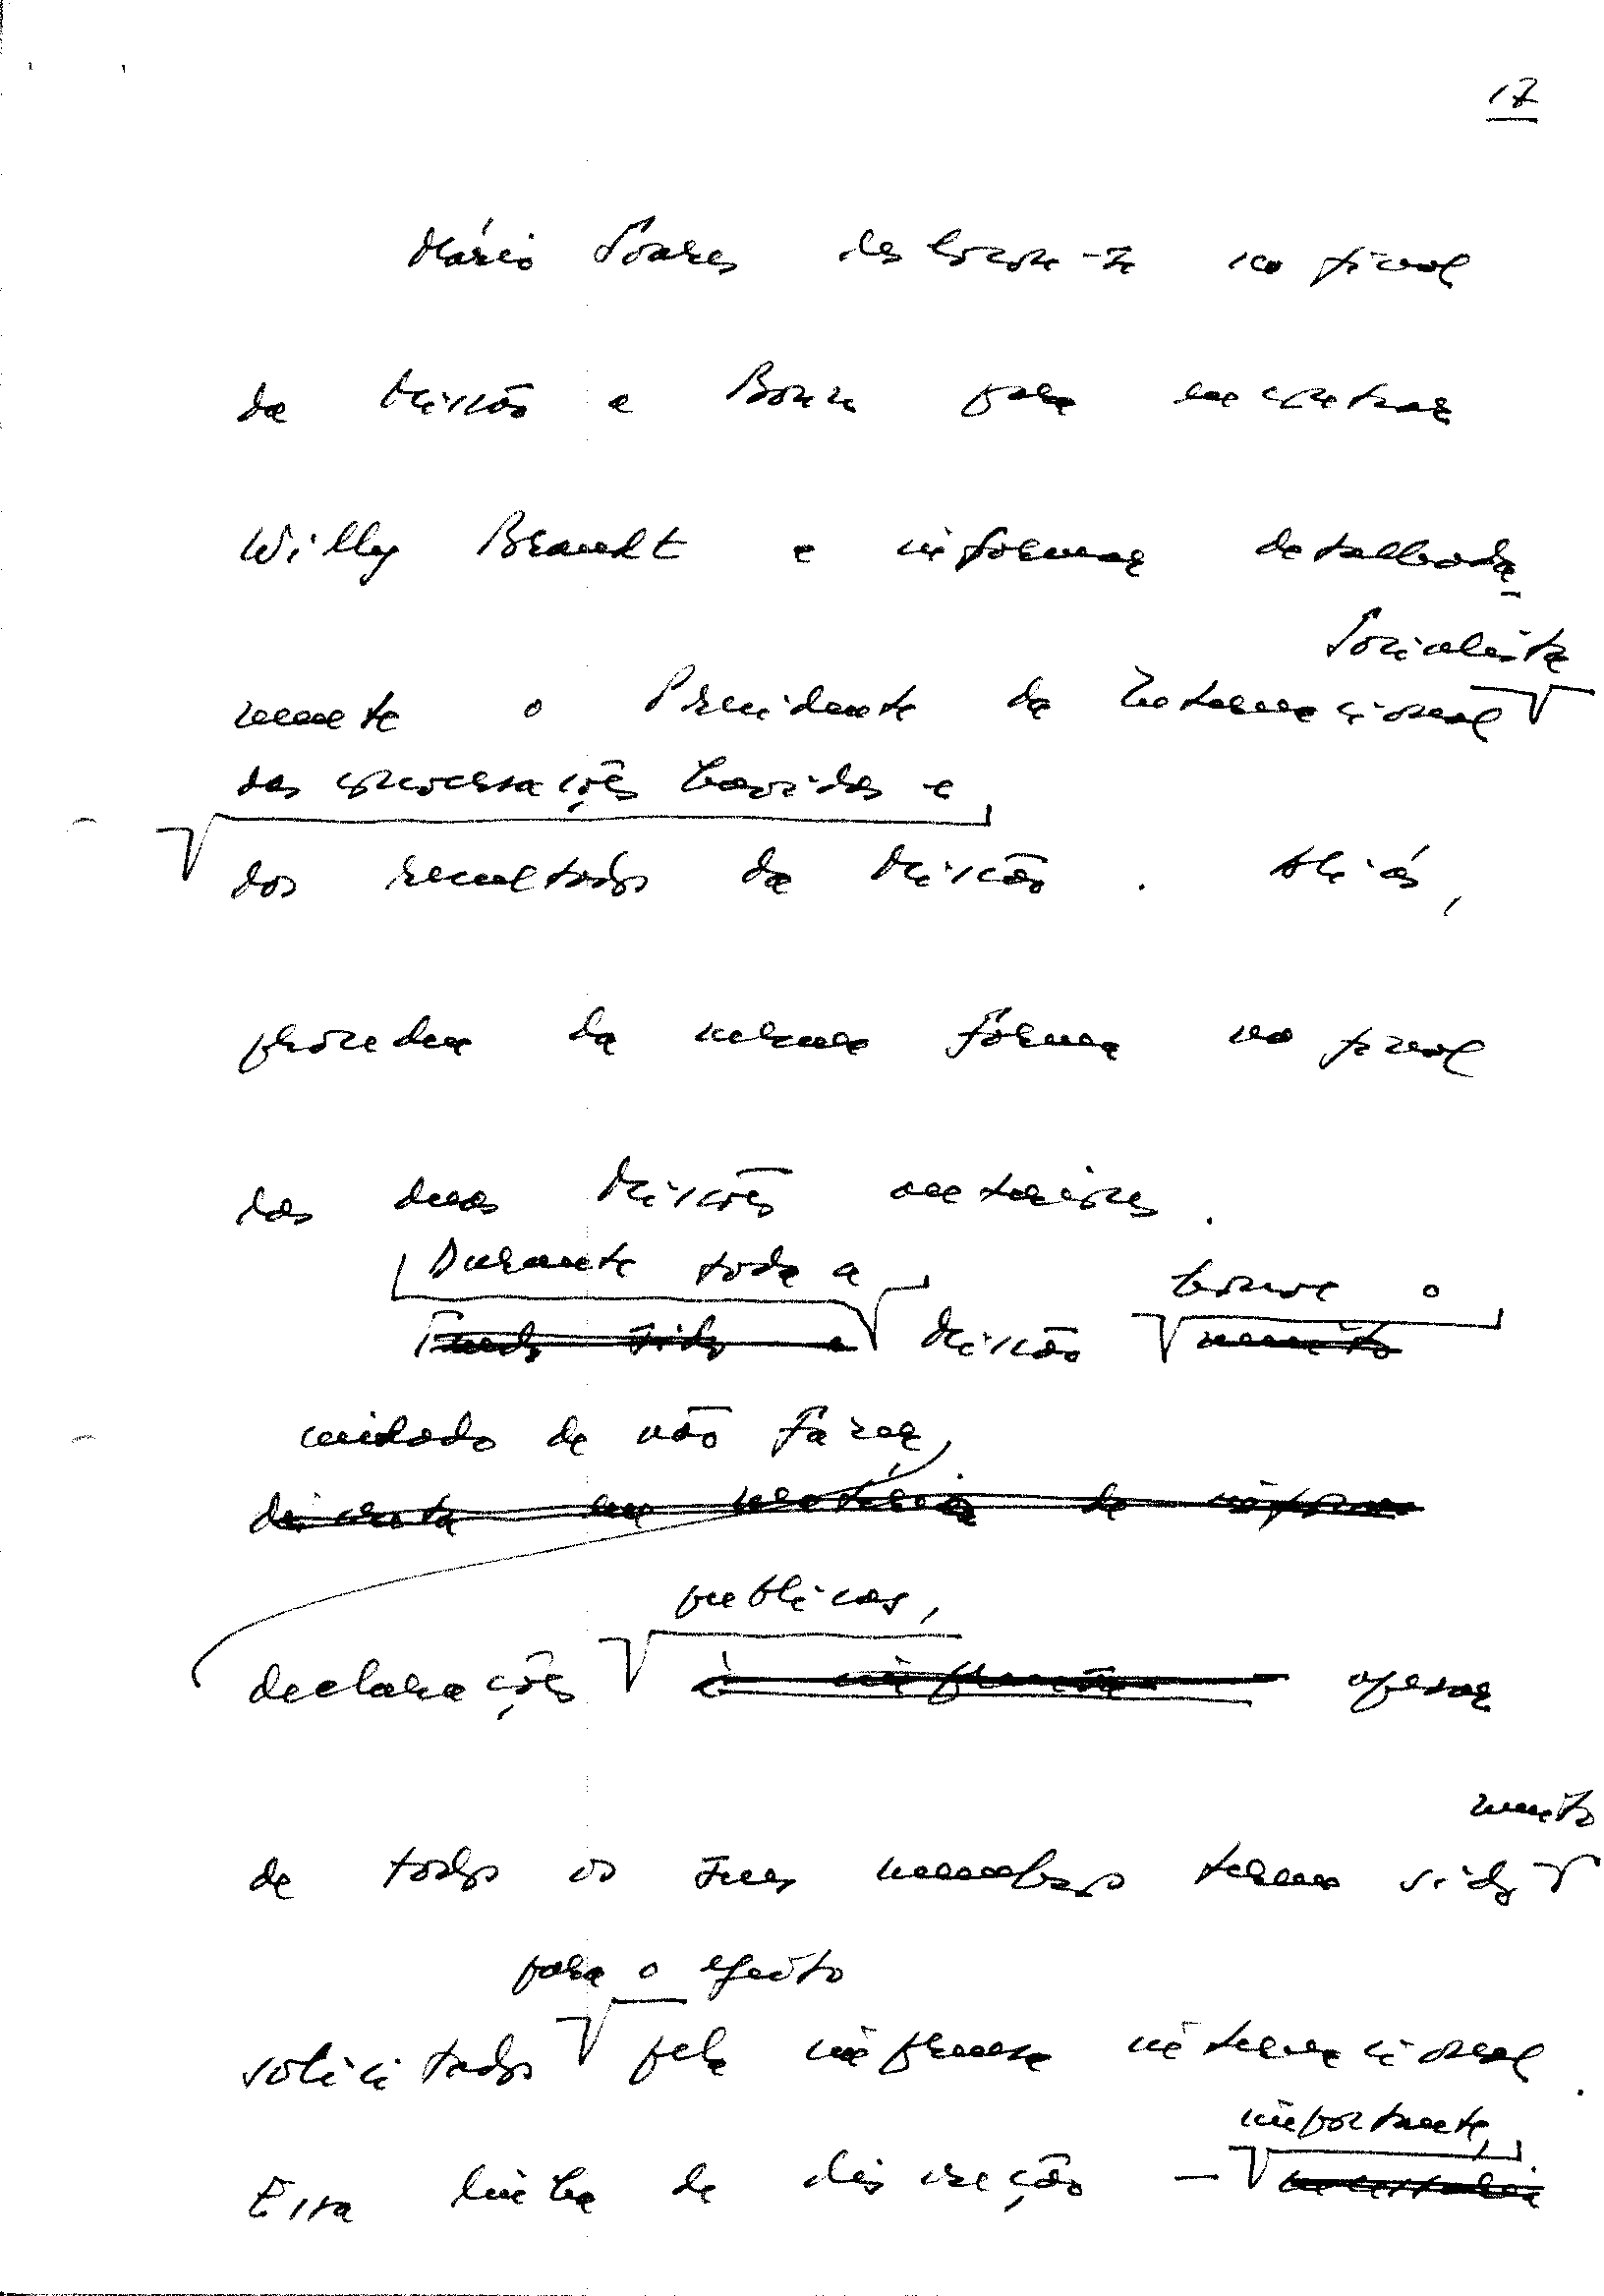 17
Mário Soares deslocou-se no final
da Missão a Bonn para encontrar
Willy Brandt e informar detalhada-
Socialista
mente o Presidente da Internacional
das conversações havidas e
dos resultados da Missão. Aliás,
procedeu da mesma forma no final
das duas Missões anteriores.
Durante toda a houve o
Missão
cuidado de não fazer,
públicas,
declarações à imprensa apesar
muito
de todos os seus membros terem sido
para o efeito
solicitados pela imprensa internacional.
importante,
Essa linha de discreção — necessária